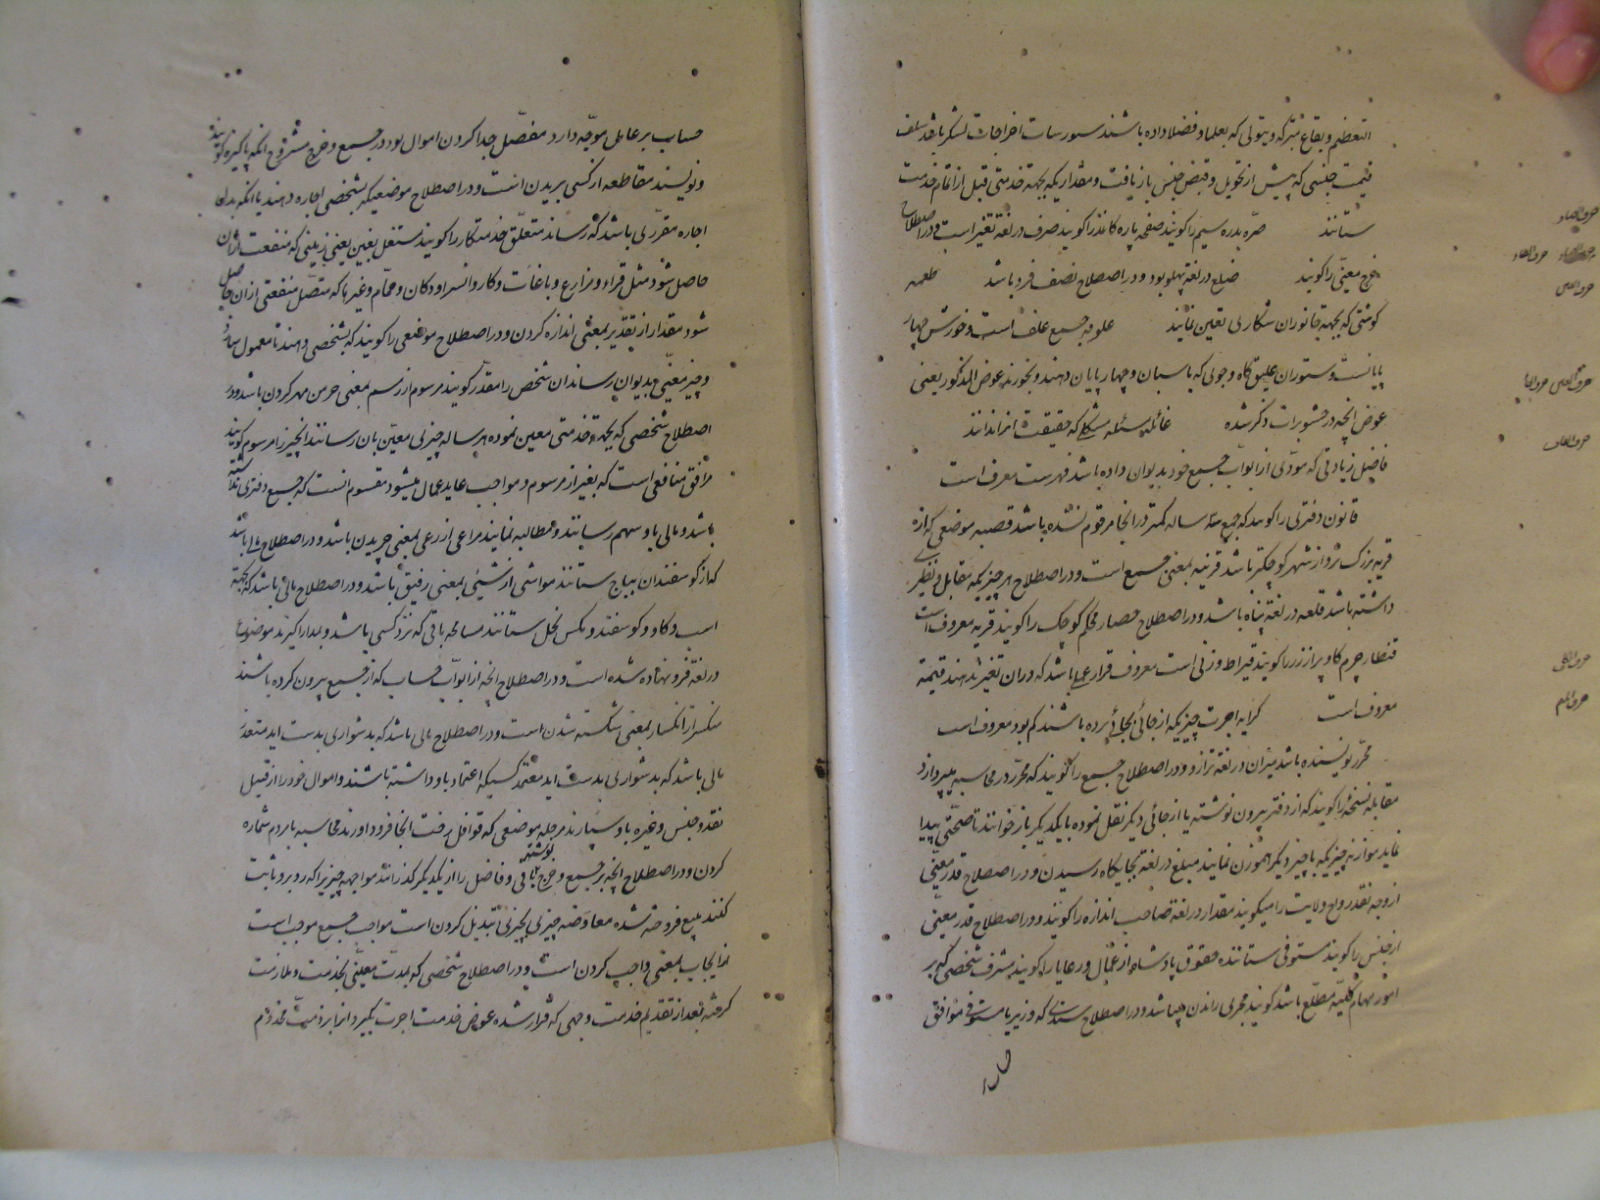 التعظیم و بقاع متبرکه و یتولی که بعلما و فضلا داده باشند سیورسات اخراجات لشکر باشد سلف
قیمت جنسی که پیش از تحویل و قبض جنس بازیافت و مقداریکه بجهة خدمتی قبل از اتمام خدمت
ستانند صره بدره سیم را کویند صفحه پاره کاغذ را کویند صرف در لغة تغیر است و در اصطلاح
خرج معینی را کویند ضلع در لغة پهلو بود و در اصطلاح نصف فرد باشد طعمه
کوشتی که بجهة جانوران شکاری تعین نمایند علوفه جمیع علف است و خورش چهار
پایانست و ستوران علیق کاه و جوی که باسبان و چهار پایان دهند و بخورند عوض المذکور یعنی
عوض انچه در حشو برات ذکر شده غائله مسئله مشکلی که حقیقت انرا ندانند
فاضل زیادتی که مودی از ابواب جمیع خود بدیوان داده باشد فهرست معرف است
قانون دفتری را کویند که جمع سه ساله کمتر در انجا مرقوم نشده باشد قصبه موضعی که از
قریه بزرک تر و از شهر کوچکتر باشد قرینه بمعنی جمیع است و در اصطلاح هر چیزیکه مقابل و نظیری
داشته باشد قلعه در لغة پناه باشد و در اصطلاح حصار محکم کوچک را کویند قریه معروف است
قنطار چرم کاو پر از زر را کویند قیراط وزنی است معروف قرار عملی باشد که در ان تغیر ندهند قیمة
معروف است کرایه اجرت چیزیکه از جائی بجائی برده باشند کم بود معروف است
محرر نویسنده باشد میزان در لغة ترازو و در اصطلاح جمیع را کویند که محرر در محاسبه بپردازد
مقابله نسخه را کویند که از دفتر بیرون نوشته یا از جائی دیکر نقل نموده با یکدیکر باز خوانند تا صحتی پیدا
نماید موازنه چیزیکه با چیز دیکر هموزن نمایند مبلغ در لغة بجایکاه رسیدن و در اصطلاح قدر معینی
از وجه نقد رواج ولایت را میکویند مقدار در لغة صاحب اندازه را کویند و در اصطلاح قدر معینی
از جنس را کویند مستوفی ستاننده حقوق پادشاه از عمال و رعایا را کویند مشرف شخصی که بر
امور مهام کلیه مطلع باشد کویند مجری راندن باشد و در اصطلاح سندی که وزیر یا مستوفی موافق
حساب
حرف الصاد
حرف الضاد حرف الطاء
حرف العین
حرف الغین حرف الفا
حرف القاف
حرف الکاف
حرف المیم
حساب بر عاملی موجه دارد مفصل جدا کردن اموال بود در جمیع و خرج مشروح انکه پاکیزه کویند
و نویسند مقاطعه از کسی بریدن است و در اصطلاح موضعیکه بشخصی اجاره دهند یا انکه بدل
اجاره مقرری باشد که رساند متعلق خدمتکار را کویند مستغل بغین یعنی زمینی که منفعت از ان
حاصل شود مثل قراء و مزارع و باغات و کاروانسرا و دکان و حمام و غیرها که متصل منفعتی از ان حاصل
شود مقدار از تقدیر بمعنی اندازه کردن و در اصطلاح موضعی را کویند که بشخصی دهند تا معمول سازد
و چیز معینی بدیوان رساند ان شخص را مقدر کویند مرسوم از رسم بمعنی خرمن مهر کردن باشد و در
اصطلاح شخصی که بجهة خدمتی معین نموده هر ساله چیزی معین بان رسانند انچیز را مرسوم کویند
مرافق منافعی است که بغیر از مرسوم و مواجب عاید عمال میشود مقسوم انست که جمیع دفتری نداشته
باشد و مالی باو سهم رسانند و مطالبه نمایند مراعی از رعی بمعنی چریدن باشد و در اصطلاح مالی باشد
که از کوسفندان بباج ستانند مواشی از شیئی بمعنی رفتن باشد و در اصطلاح مالی باشد که بجهة
اسب و کاو و کوسفند و مکس نحل ستانند مسامحه باقی که نزد کسی باشد و بمدارا کیرند موضوع
در لغة فرو نهاده شده است و در اصطلاح انچه از ابواب حساب که از جمیع بیرون کرده باشند
منکسر از انکسار بمعنی شکسته شدن است و در اصطلاح مالی باشد که بدشواری بدست اید متعذر
مالی باشد که بدشواری بدست اید معتمد کسیکه اعتماد باو داشته باشند و اموال خود را از قبیل
نقد و جنس و غیره باو سپارند مرحله موضعی که قوافل رفت انجا فرود اورند محاسبه با مردم شماره
کردن و در اصطلاح انچه بر جمیع و خرج نوشته باقی و فاضل را از یکدیکر کذرانند مواجهه چیزیرا که روبرو ثابت
کنند مبیع فروخته شده معاوضه چیزی بچیزی تبدیل کردن است مواجب جمیع موجب است
از ایجاب بمعنی واجب کردن است و در اصطلاح شخصی که مدت معینی بخدمت و ملازمت
کرفته بعد از تقدیم خدمت وجهی که قرار شده عوض خدمت اجرت بکیرد